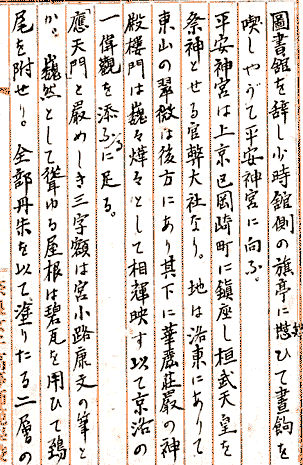 圖書館を辞し少時館側の旗亭に憩ひて晝餉を
喫しやがて平安神宮に向ふ。
平安神宮は上京区岡崎町に鎮座し桓武天皇を
祭神とせる官幣大社なり。地は洛東にありて
東山の翠微は後方にあり其下に華麗荘嚴の神
殿樓門は巍々燁々として相輝映す以て京洛の
一偉觀を添ふるに足る。
「應天門」と嚴めしき三字額は宮小路康文の筆と
か。巍然として聳ゆる屋根は碧瓦を用ひて鵄
尾を附せり。全部丹朱を以て塗りたる二層の